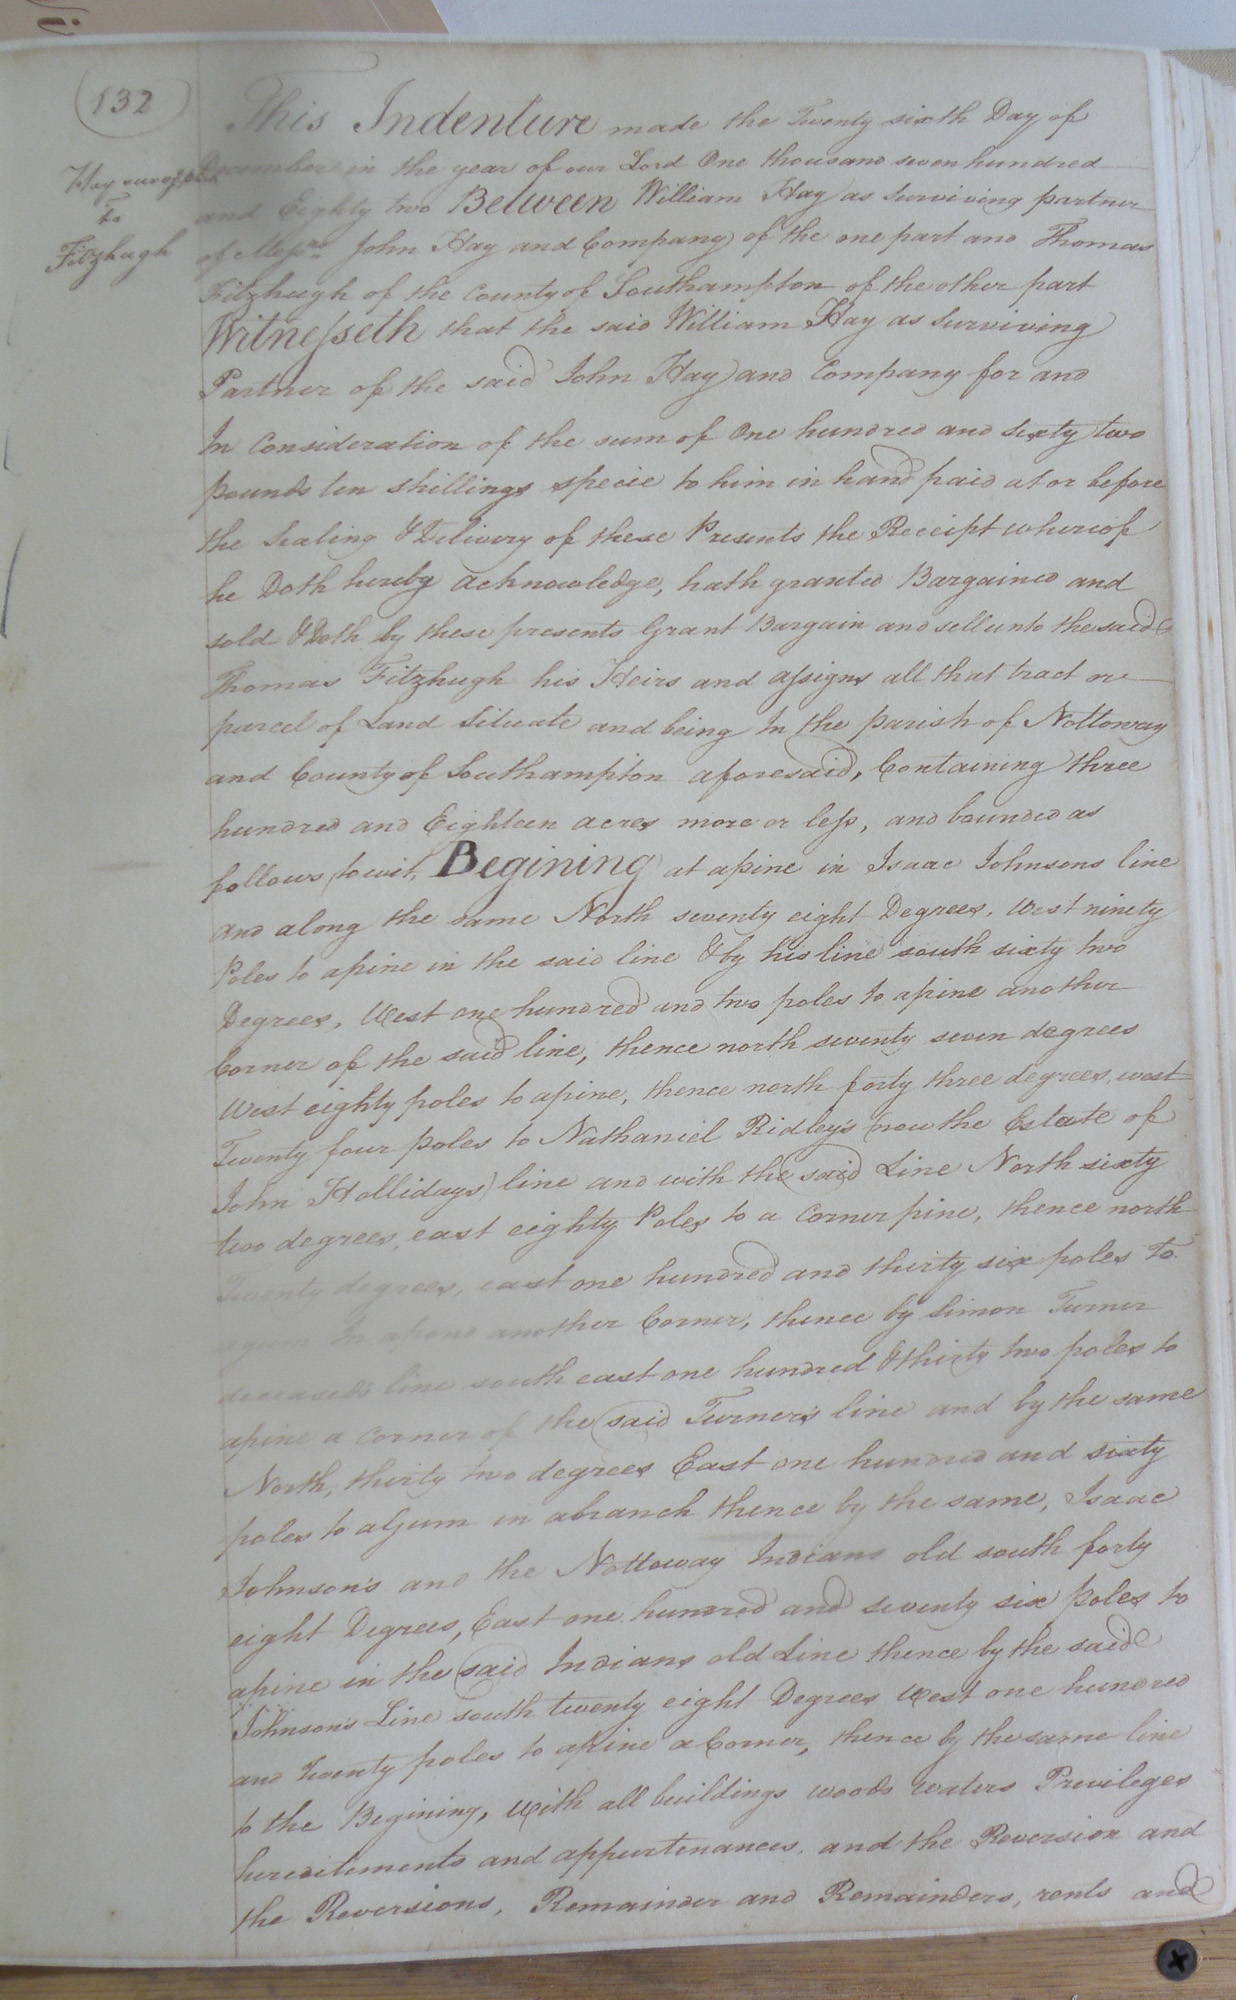 132
Hay
To
Fitzhugh
This Indenture made the Twenty sixth Day of
December in the year of our Lord One thousand seven hundred
and Eighty two Between William Hay as Surviving partner
of Messrs John Hay and Company of the one part and Thomas
Fitzhugh of the County of Southampton of the other part
Witnesseth that the said William Hay as Surviving
Partner of the said John Hay and Company for and
In Consideration of the sum of One hundred and Sixty two
pounds ten shillings specie to him in hand paid at or before
the Sealing & Delivery of these Presents the Receipt whereof
he Doth hereby acknowledge, hath granted Bargained and
sold & Doth by these presents Grant Bargain and sell unto the said
Thomas Fitzhugh his Heirs and assigns all that tract or
parcel of Land Situate and being In the parish of Nottoway
and County of Southampton aforesaid, Containing three
hundred and Eighteen acres more or less, and bounded as
follows towit, Begining at apine in Isaac Johnsons line
and along the same North seventy eight Degrees, West ninety
Poles to apine in the said line & by his line south sixty two
Degrees, West one hundred and two poles to apine another
Corner of the said line, thence north seventy seven degrees
West eighty poles to apine, thence north forty three degrees, west
Twenty four poles to Nathaniel Ridleys (now the Estate of
John Hollidays) line and with the said Line North sixty
two degrees, east eighty Poles to a Corner pine, thence north
Twenty degrees, east one hundred and thirty six poles to
another Corner, thence by Simon Turner
deceaseds line south east one hundred & thirty two poles to
apine a Corner of the said Turner's line and by the same
North, thirty two degrees East one hundred and sixty
poles to agum in abranch thence by the same, Isaac
Johnson's and the Nottoway Indians old south forty
eight Degrees, East one hundred and seventy six poles to
apine in the said Indians old Line thence by the said
Johnson's Line south twenty eight Degrees West one hundred
and Twenty poles to apine a Corner, thence by the same line
to the Begining, With all buildings woods waters Privileges
hereditements and appurtenances, and the Reversion and
the Reversions, Remainder and Remainders, rents and